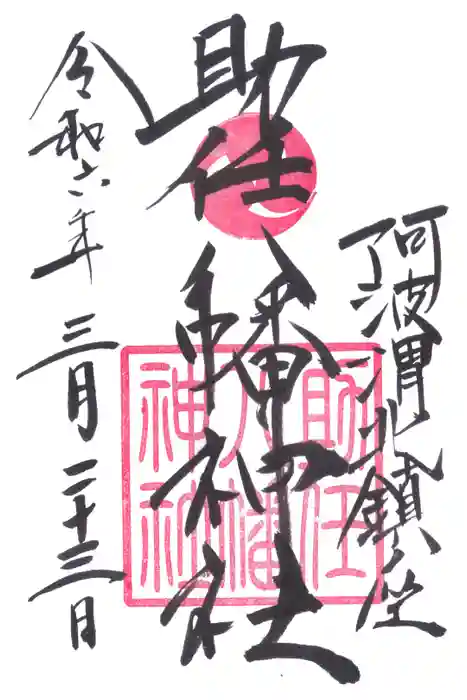 阿波渭北鎮座
助任八幡神社
令和六年三月二十三日
助任
八幡
神社